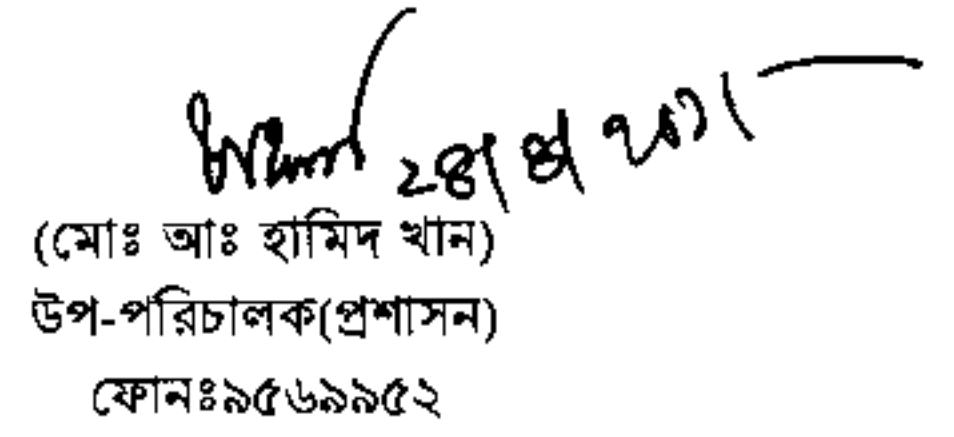 (মোঃ আঃ হামিদ খান)
উপ-পরিচালক(প্রশাসন)
ফোনঃ৯৫৬৯৯৫২